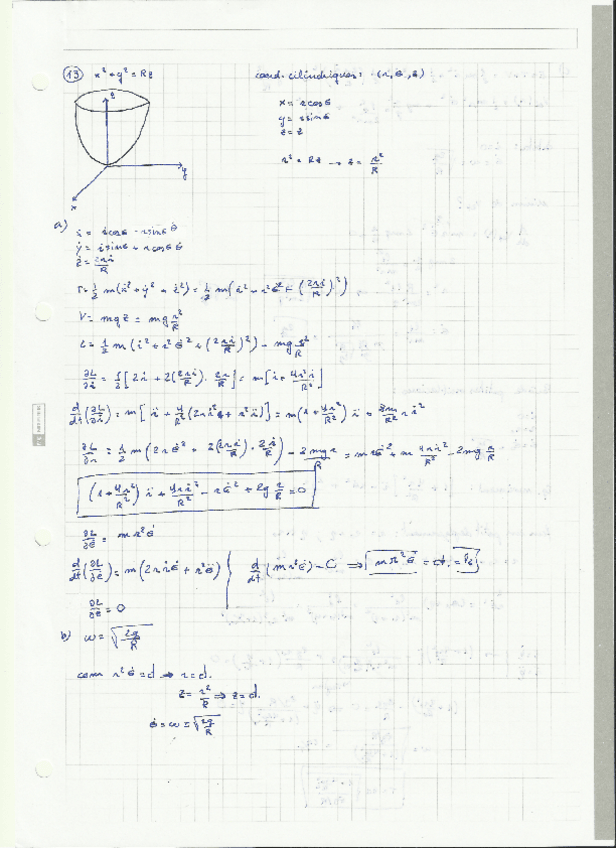 13 x² + y² = Rz
coord. cilíndriques: (r, θ, z)
z
y
x
x = r cosθ
y = r sinθ
z = z
r² = Rz → z = r²/R
a)
ẋ = ṙ cosθ - r sinθ θ̇
ẏ = ṙ sinθ + r cosθ θ̇
ż = 2rṙ/R
T = 1/2 m(ẋ² + ẏ² + ż²) = 1/2 m(ṙ² + r²θ̇² + (2rṙ/R)²)
V = mgz = mg r²/R
L = 1/2 m (ṙ² + r²θ̇² + (2rṙ/R)²) - mg r²/R
∂L/∂ṙ = [2ṙ + 2(2rṙ/R) · 2r/R] = m[ṙ + 4r²ṙ/R²]
d/dt(∂L/∂ṙ) = m[r̈ + 4/R²(2rṙ² + r²r̈)] = m(1 + 4r²/R²) r̈ + 8m/R² rṙ²
∂L/∂r = 1/2 m(2rθ̇² + 2(2rṙ/R) · 2ṙ/R) - 2mgr/R = mrθ̇² + m 4rṙ²/R² - 2mg r/R
(1 + 4r²/R²) r̈ + 4rṙ²/R² - rθ̇² + 2g r/R = 0
∂L/∂θ̇ = mr²θ̇
d/dt(∂L/∂θ̇) = m(2rṙθ̇ + r²θ̈)
d/dt(mr²θ̇) = 0 ⇒ mr²θ̇ = ct.
∂L/∂θ = 0
b) ω = √(2g/R)
com r²θ̇ = ct ⇒ r = ct.
z = r²/R ⇒ z = ct.
θ̇ = ω = √(2g/R)